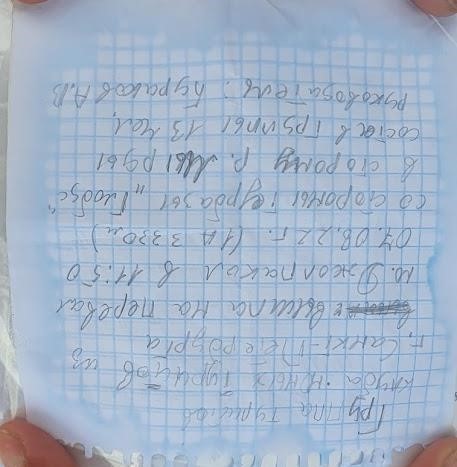 Группа туристов
клуба юных туристов из
г. Санкт-Петербурга
вышла на перевал
ю. Джолпакол в 11:50
07.08.22 г. (1А 3330м)
со стороны турбазы "Глобус"
в сторону р. Мырды
состав группы 13 чел.
руководитель: Бураков А.В